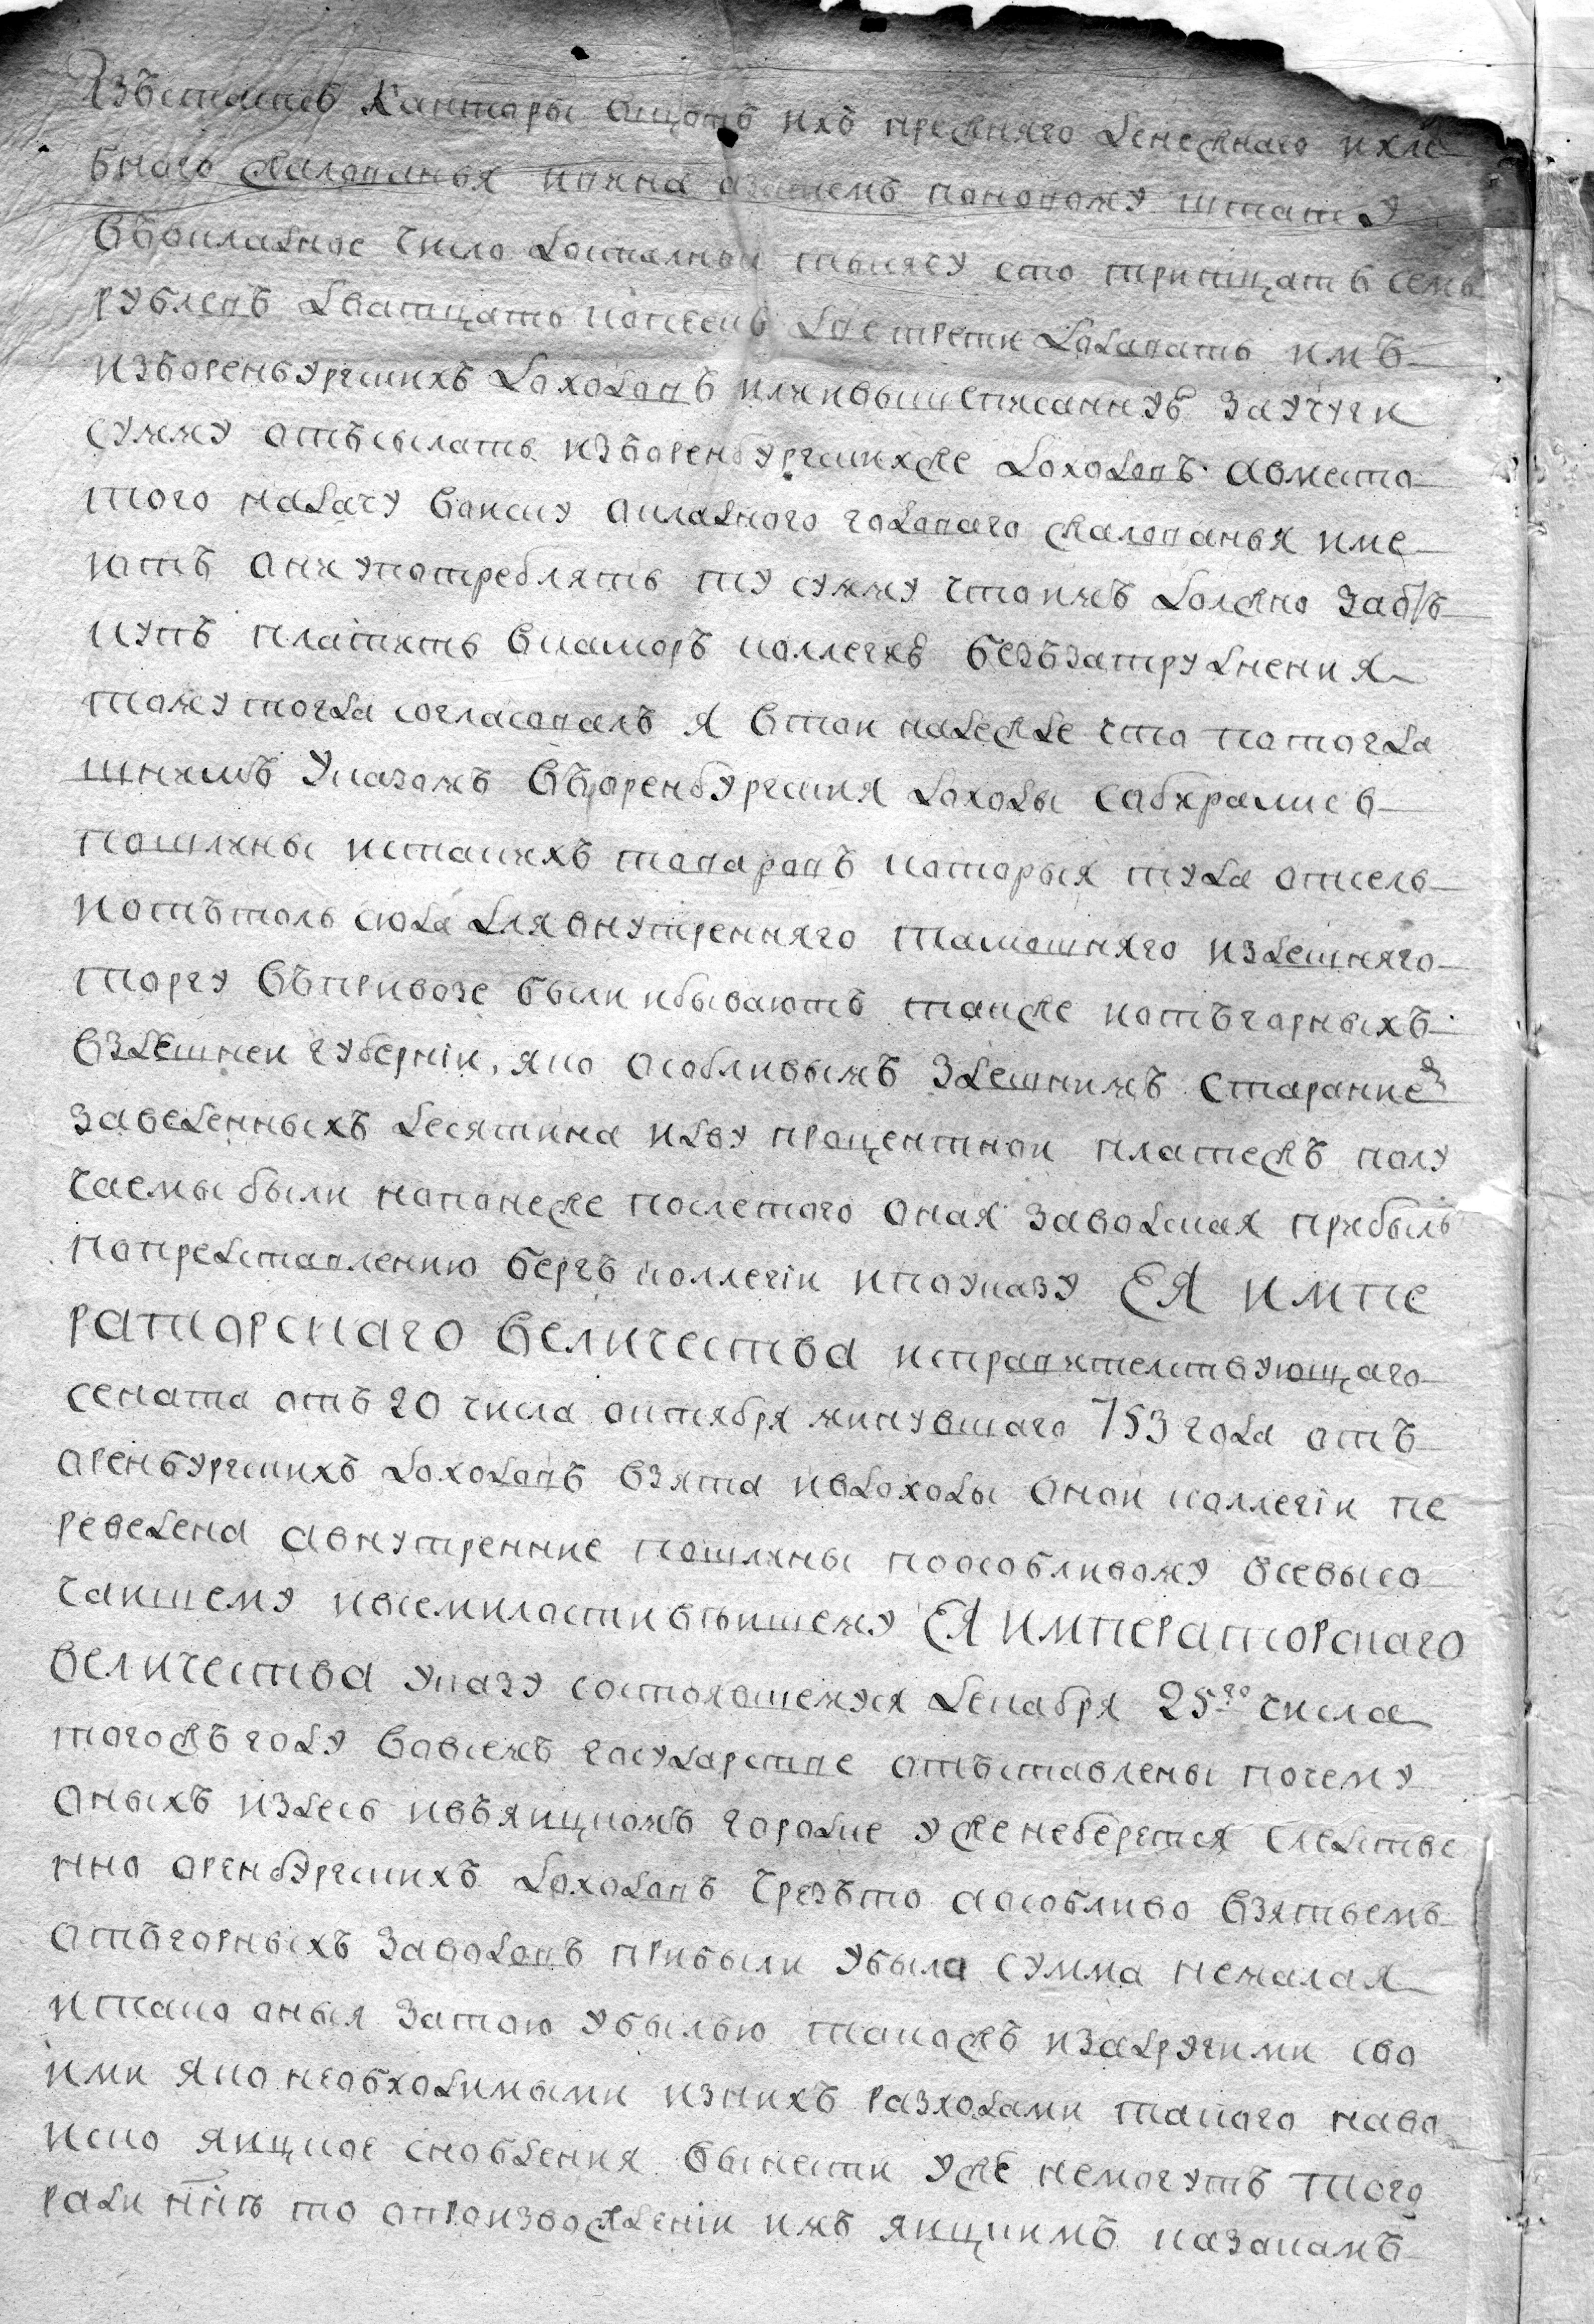 Изъ статсъ канторы вщотъ ихъ прежняго денежнаго ихле
бнаго жалованья ионна взятемъ поновому штату
въокладное число достальной тысячу сто тритцать семь
рублевъ дватцать копеекъ две трети додавать имъ
изъоренбургскихъ доходовъ или вышеписанную зачучи
сумму отъсылать изъоренбургскихже доходовъ авместо
того надачу воиску окладного годового жалованья име
ютъ они употреблять ту сумму что имъ должно забѣ
купъ платить вкаморъ коллегию безъзатруднения
тому тогда согласовалъ я втой надежде что потогда
шнимъ указомъ въоренбургския доходы собирались
пошлины истакихъ товаровъ которыя туда отсель
иоттоль сюда для внутренняго тамошняго издешняго
торгу въпривозе были ибываютъ также иотъгорныхъ
вздешней губернии, яко особливымъ здешнимъ старание
заведенныхъ десятина идву процентной платежъ полу
чаемы были нопонеже послетого оная заводская прибыль
попредставлению бергъ коллегии ипоуказу ЕЯ импе
раторскаго величества исправительствующаго
сената отъ 20 числа октября минувшаго 753 года отъ
оренбургскихъ доходовъ взята ивдоходы оной коллегии пе
реведена авнутренние пошлины поособливому всевысо
чайшему ивсемилостивѣйшему ЕЯ императорскаго
величества указу состоявшемуся декабря 25го числа
тогожъ году вовсемъ государстве отъставлены почему
оныхъ издесь ивъяицкомъ городке уже неберется следстве
нно оренбургскихъ доходовъ чрезъто аособливо взятьемъ
отъгорныхъ заводовъ прибыли убыла сумма немалая
итако оныя затою убылью такожъ изадругими сво
ими яко необходимыми изнихъ разходами такого наво
иско яицкое снобдения вынести уже немогутъ того
ради ннѣ то опроизвождении имъ яицкимъ казакамъ